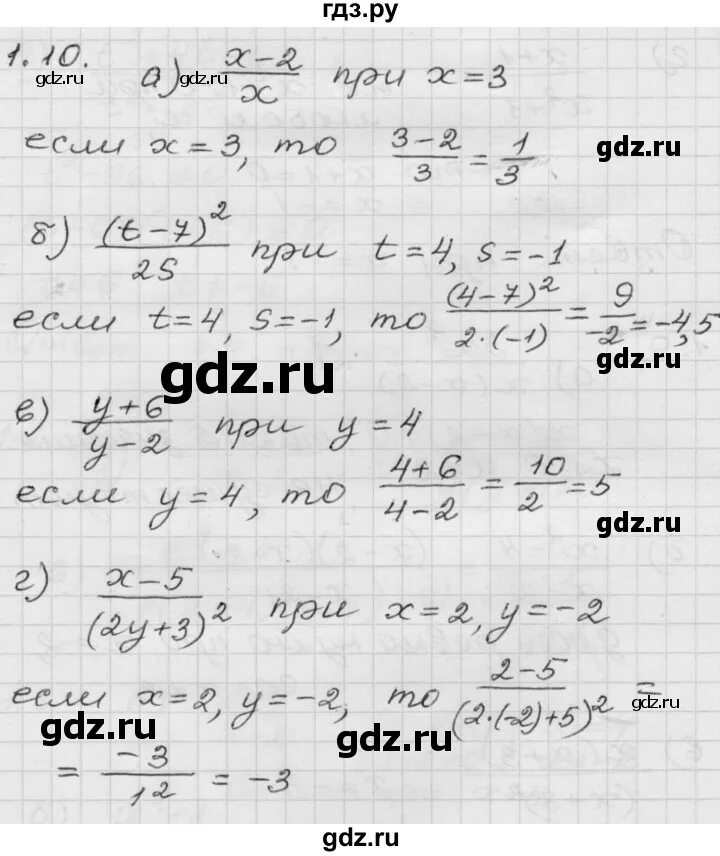 гдз.ру
1.10. а) (x-2)/x при x=3
gdz.ru gdz.ru gdz.ru
если x=3, то (3-2)/3 = 1/3
gdz.ru
б) (t-7)²/2s при t=4, s=-1
gdz.ru gdz.ru
если t=4, s=-1, то (4-7)²/(2·(-1)) = 9/-2 = -4,5
gdz.ru gdz.ru
в) (y+6)/(y-2) при y=4
если y=4, то (4+6)/(4-2) = 10/2 = 5
gdz.ru gdz.ru
г) (x-5)/(2y+3)² при x=2, y=-2
gdz.ru gdz.ru
если x=2, y=-2, то (2-5)/(2·(-2)+5)² =
gdz.ru gdz.ru
= -3/1² = -3
gdz.ru
gdz.ru